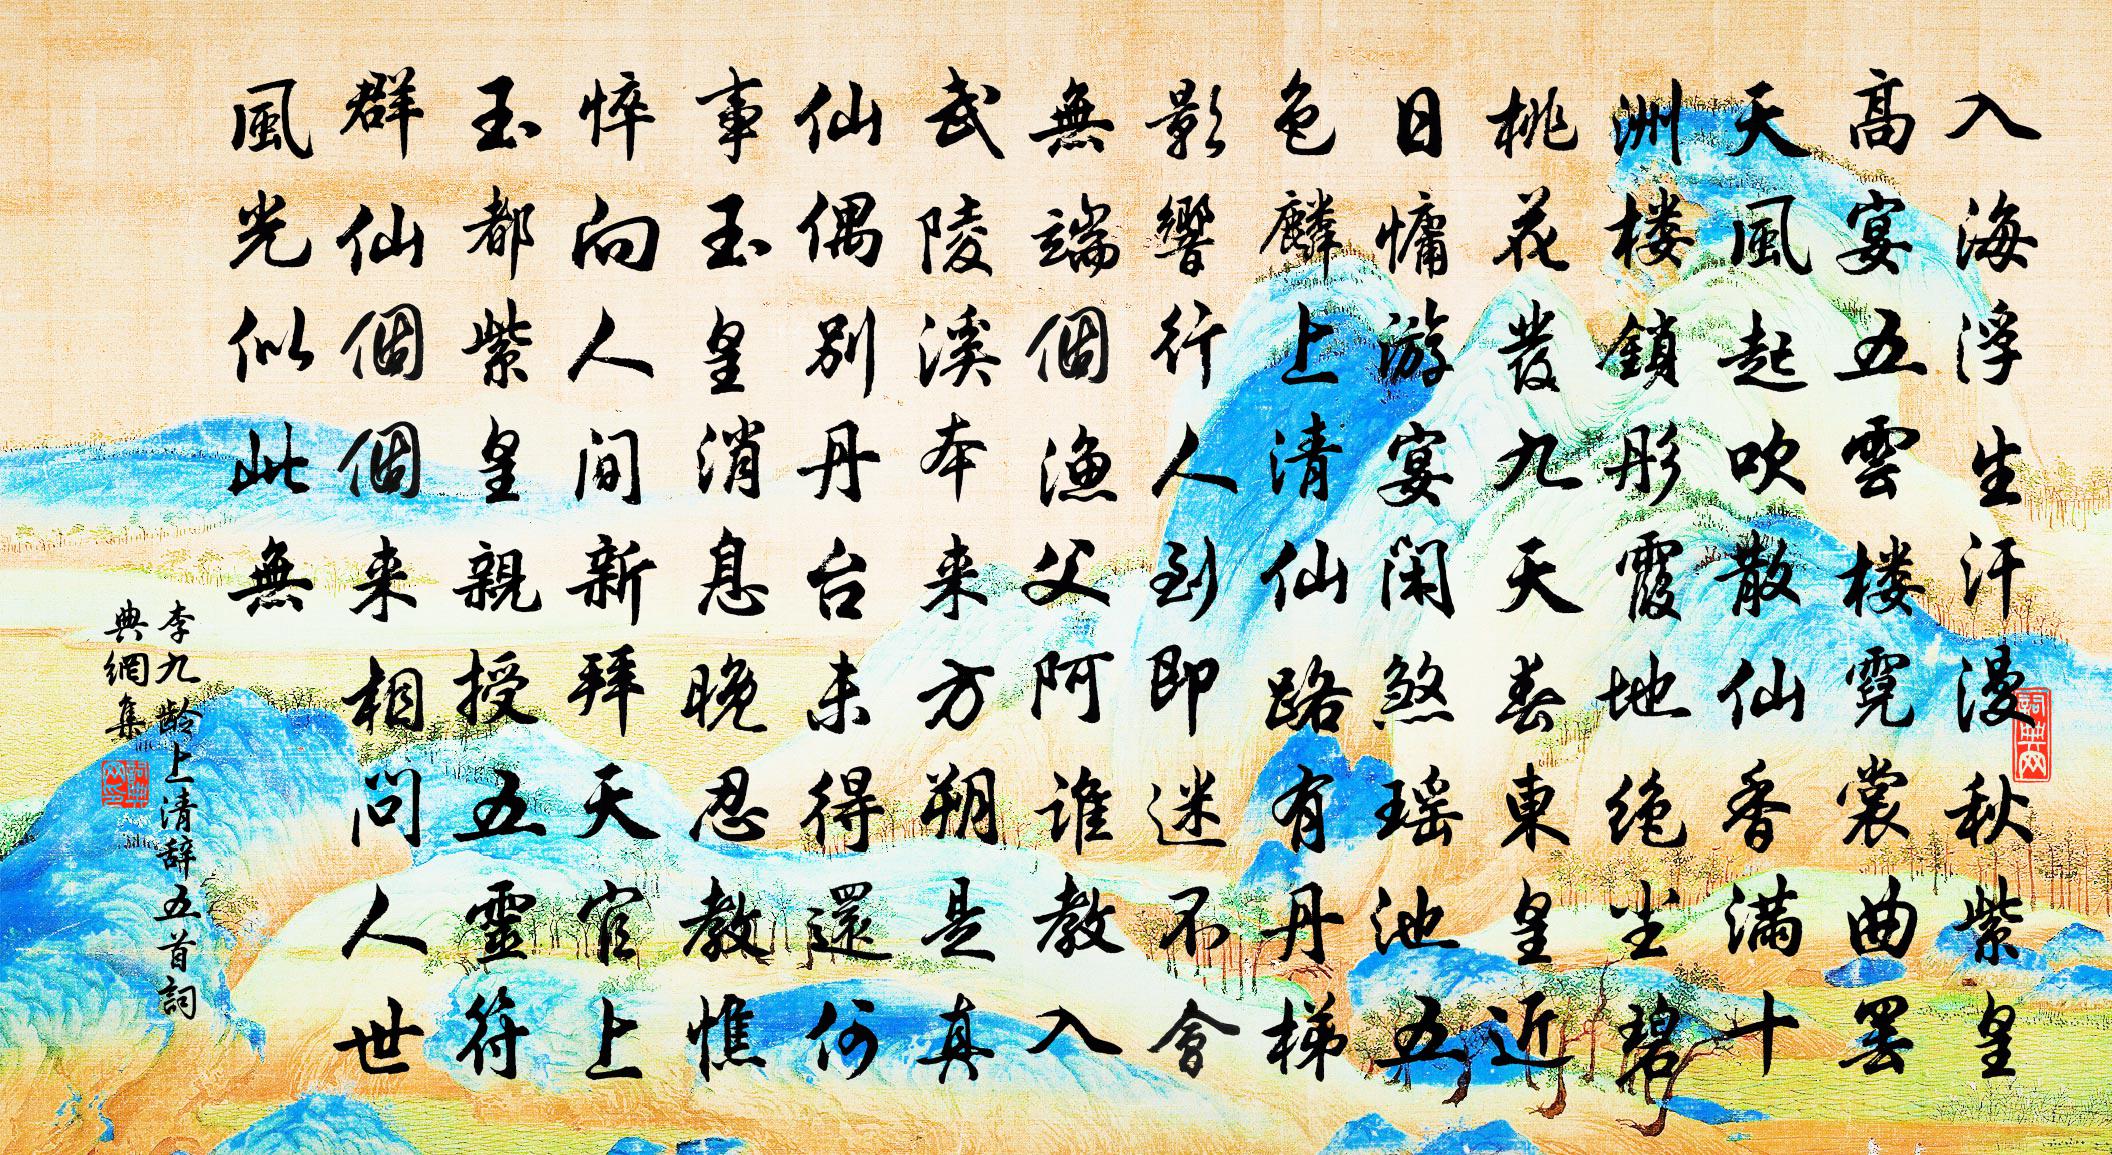 入海浮生汗漫秋紫皇
高宴五雲楼霓裳曲罢
天風起吹散仙香满十
洲楼鎖彤霞地绝尘碧
桃花發九天春東皇近
日慵游宴闲煞瑶池五
色麟上清仙路有丹梯
影響行人到即迷不會
無端個渔父阿谁教入
武陵溪本来方朔是真
仙偶别丹台未得還何
事玉皇消息晚忍教憔
悴向人间新拜天官上
玉都紫皇親授五靈符
群仙個個来相问人世
風光似此無
李九龄上清辞五首詞
典網集